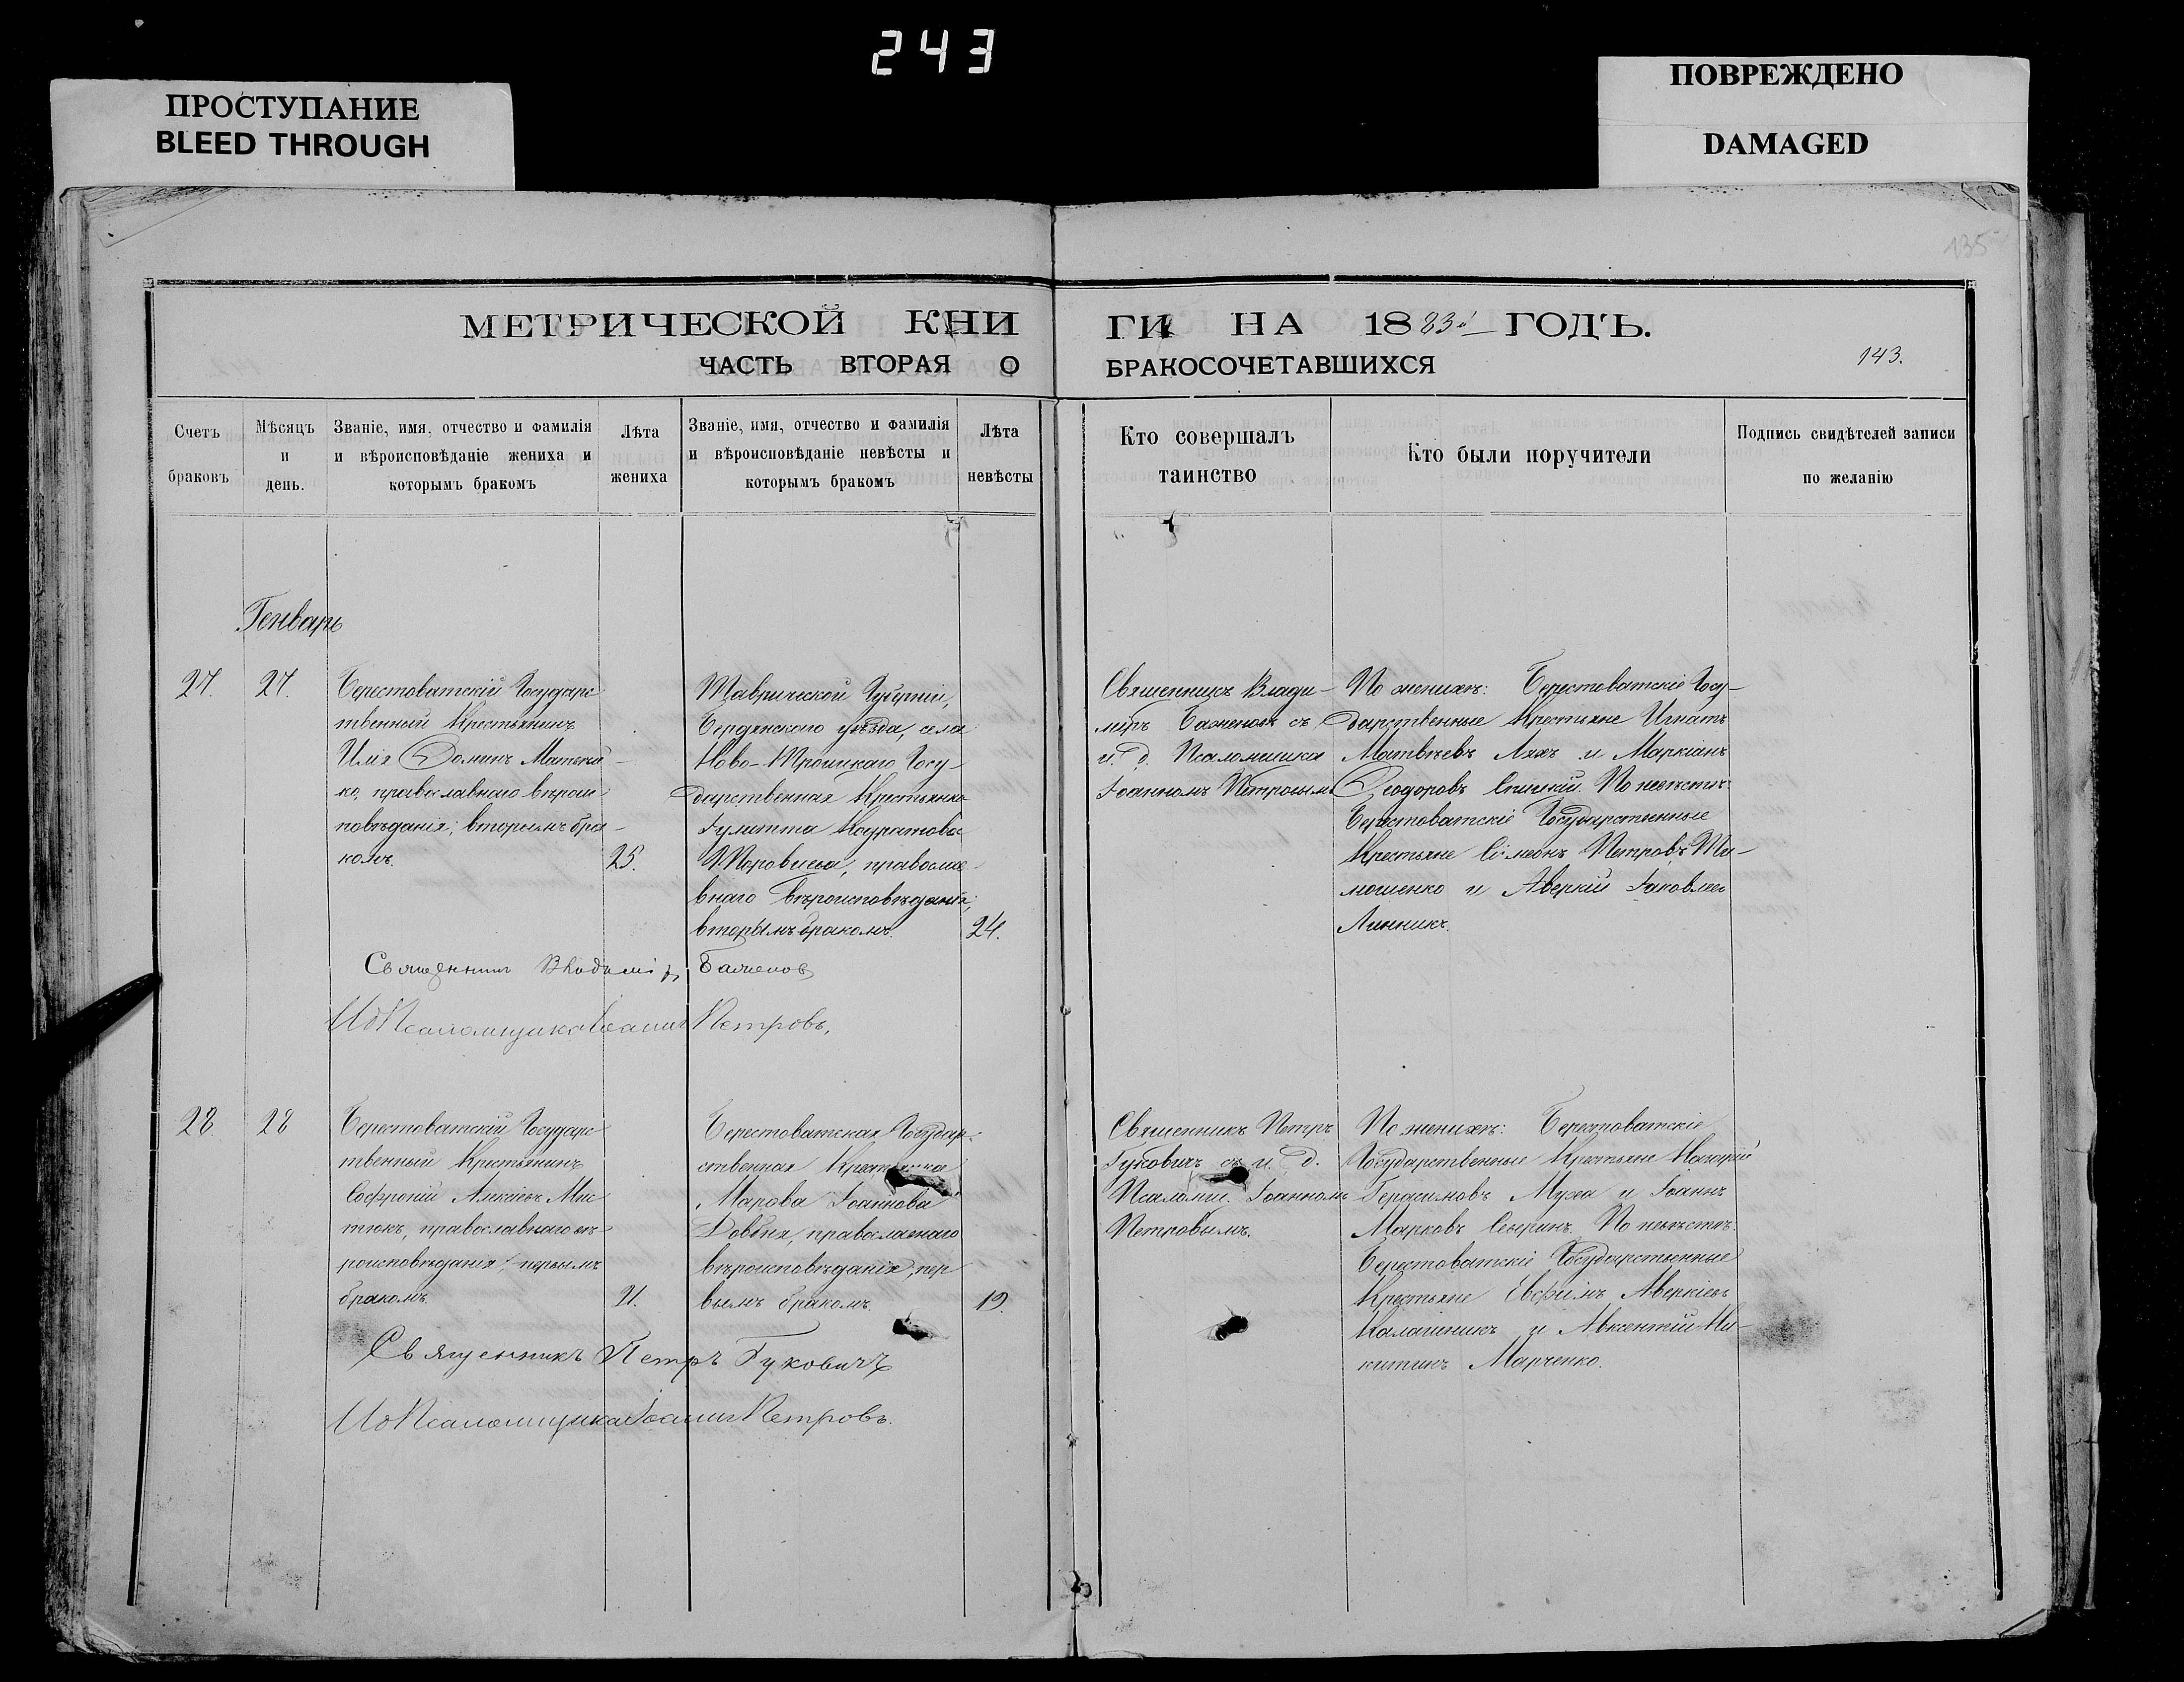 243
ПРОСТУПАНИЕ
BLEED THROUGH
ПОВРЕЖДЕНО
DAMAGED
135
МЕТРИЧЕСКОЙ КНИГИ НА 1883й ГОДЪ.
ЧАСТЬ ВТОРАЯ О БРАКОСОЧЕТАВШИХСЯ
143.
Счетъ
браковъ
Мѣсяцъ
и
день.
Званіе, имя, отчество и фамилія
и вѣроисповѣданіе жениха и
которымъ бракомъ
Лѣта
жениха
Званіе, имя, отчество и фамилія
и вѣроисповѣданіе невѣсты и
которымъ бракомъ
Лѣта
невѣсты
Кто совершалъ
таинство
Кто были поручители
Подпись свидѣтелей записи
по желанію
Генварь
27.
27.
Берестоватскій Государс
твенный Крестьянинъ
Илія
православнаго вѣроис
повѣданія; вторымъ бра-
комъ.
25.
Таврической Губерніи,
Бердянскаго уѣзда, села
Ново-Троицкаго Госу-
дарственная Крестьянка
Іулитта
православ-
внаго вѣроисповѣданія;
вторымъ бракомъ.
24.
Священникъ Влади-
миръ Баженовъ съ
и. д. Псаломщика
Іоанномъ Петровымъ
По женихѣ: Берестоватскіе Госу-
дарственные Крестьяне Игнатъ
Матвѣевъ Ляхъ и Маркіанъ
Ѳеодоровъ По невѣстѣ:
Берестоватскіе Государственные
Крестьяне Сѵмеонъ Петровъ Ти-
мошенко и Аверкій Іаковлевъ
Линникъ.
Священникъ Владиміръ Баженовъ
И д Псаломщика Іоаннъ Петровъ.
28
28
Берестоватскій Государс
твенный Крестьянинъ
Софроній Алексіевъ Мис
тюкъ, православнаго вѣ-
роисповѣданія; первымъ
бракомъ.
21.
Берестоватская Государ-
ственная Крестьянка
Марѳа Іоаннова
Довбня, православнаго
вѣроисповѣданія, пер
вымъ бракомъ.
19.
Священникъ Петръ
Гуковичъ съ и. д.
Псаломщ. Іоанномъ
Петровымъ.
По женихѣ: Берестоватскіе
Государственные Крестьяне Назарій
Герасимовъ Муха и Іоаннъ
Марковъ По невѣстѣ:
Берестоватскіе Государственные
Крестьяне Евфимъ Аверкіевъ
Калашникъ и Авксентій Ни-
китинъ Марченко.
Священникъ Петръ Гуковичъ
И д Псаломщика Іоаннъ Петровъ.